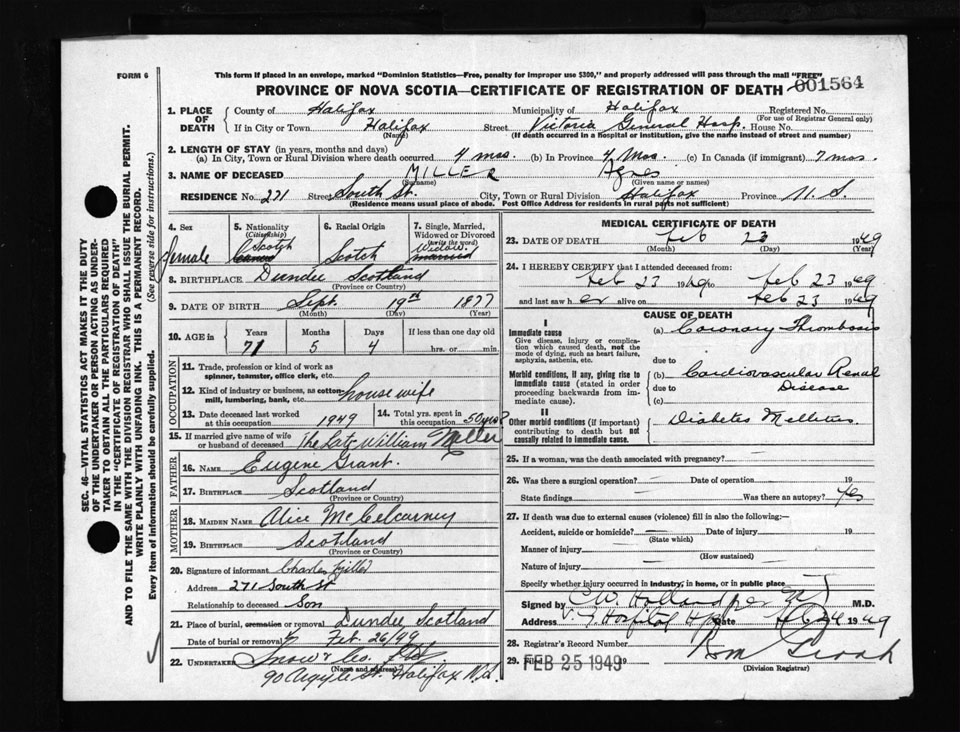 FORM 6
This form if placed in an envelope, marked "Dominion Statistics—Free, penalty for improper use $300," and properly addressed will pass through the mail "FREE"
PROVINCE OF NOVA SCOTIA—CERTIFICATE OF REGISTRATION OF DEATH 001564
1. PLACE OF DEATH County of Halifax Municipality of Halifax Registered No.
(For use of Registrar General only)
If in City or Town Halifax Street Victoria General Hosp. House No.
(Name) (If death occurred in a hospital or institution, give its name instead of street and number)
2. LENGTH OF STAY (in years, months and days)
(a) In City, Town or Rural Division where death occurred 4 mos. (b) In Province 4 Mos. (c) In Canada (if immigrant) 7 mos.
3. NAME OF DECEASED MILLER Agnes
(Surname) (Given name or names)
RESIDENCE No. 271 Street South St. City, Town or Rural Division Halifax Province N.S.
(Residence means usual place of abode. Post Office Address for residents in rural parts not sufficient)
4. Sex female
5. Nationality (Citizenship) Scotch
6. Racial Origin Scotch
7. Single, Married, Widowed or Divorced (write the word) Widow married
8. BIRTHPLACE Dundee Scotland
(Province or Country)
9. DATE OF BIRTH Sept. 19th 1877
(Month) (Day) (Year)
10. AGE in Years Months Days If less than one day old
71 5 4 hrs. or min.
OCCUPATION
11. Trade, profession or kind of work as spinner, teamster, office clerk, etc.
12. Kind of industry or business, as cotton-mill, lumbering, bank, etc. housewife
13. Date deceased last worked at this occupation 1949
14. Total yrs. spent in this occupation 50 yrs?
15. If married give name of wife or husband of deceased The Late William Miller
FATHER
16. NAME Eugene Grant.
17. BIRTHPLACE Scotland
(Province or Country)
MOTHER
18. MAIDEN NAME Alice
19. BIRTHPLACE Scotland
(Province or Country)
20. Signature of informant Charles Miller
Address 271 South St
Relationship to deceased Son
21. Place of burial, cremation or removal Dundee Scotland
Date of burial or removal Feb. 26/49
22. UNDERTAKER Snow & Co. Ltd
(Name and address)
90 Argyle St. Halifax N.S.
MEDICAL CERTIFICATE OF DEATH
23. DATE OF DEATH Feb 23 1949
(Month) (Day) (Year)
24. I HEREBY CERTIFY that I attended deceased from:
Feb 23 1949 to Feb 23 1949
and last saw her alive on Feb 23 1949
CAUSE OF DEATH
I
Immediate cause
Give disease, injury or complication which caused death, not the mode of dying, such as heart failure, asphyxia, asthenia, etc.
(a) Coronary Thrombosis
due to
Morbid conditions, if any, giving rise to immediate cause (stated in order proceeding backwards from immediate cause).
(b) Cardiovascular Renal Disease
due to
(c)
II
Other morbid conditions (if important) contributing to death but not causally related to immediate cause.
Diabetes Mellitus.
25. If a woman, was the death associated with pregnancy? —
26. Was there a surgical operation? — Date of operation 19
State findings — Was there an autopsy? Yes
27. If death was due to external causes (violence) fill in also the following:—
Accident, suicide or homicide? — Date of injury 19
(State which)
Manner of injury
(How sustained)
Nature of injury
Specify whether injury occurred in industry, in home, or in public place
Signed by C W Holland per M.D.
Address V. G. Hospital Hfx Date Feb 24 1949
28. Registrar's Record Number
29. FEB 25 1949 19
(Division Registrar)
SEC. 46—VITAL STATISTICS ACT MAKES IT THE DUTY OF THE UNDERTAKER OR PERSON ACTING AS UNDERTAKER TO OBTAIN ALL THE PARTICULARS REQUIRED IN THE "CERTIFICATE OF REGISTRATION OF DEATH" AND TO FILE THE SAME WITH THE DIVISION REGISTRAR WHO SHALL ISSUE THE BURIAL PERMIT.
WRITE PLAINLY WITH UNFADING INK. THIS IS A PERMANENT RECORD.
Every item of information should be carefully supplied. (See reverse side for instructions.)